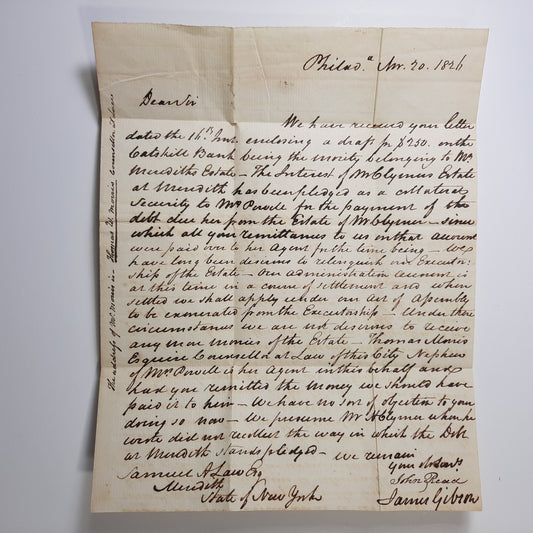 Philad.a Nov. 20. 1826
Dear Sir
We have received your letter
dated the 16th Inst enclosing a draft for $250. on the
Catskill Bank being the moiety belonging to Mr
Merediths Estate – The Interest of Mr Clymers Estate
at Meredith has been pledged as a collateral
Security to Mrs Powell for the payment of the
debt due her from the Estate of Mr Clymer – since
which all your remittances to us on that account
were paid over to her Agent for the time being – We
have long been desirous to relinquish our Executor-
ship of the Estate – Our administration account is
at this time in a course of settlement and when
settled we shall apply under our Act of Assembly
to be exonerated from the Executorship – Under these
circumstances we are not desirous to receive
any more monies of the Estate – Thomas Morris
Esquire Counsellor at Law of this City Nephew
of Mrs Powell is her Agent in this behalf and
had you remitted the money we should have
paid it to him – We have no sort of objection to your
doing so now – We presume Mr H Clymer when he
wrote did not recollect the way in which the Debt
at Meredith stands pledged – We remain
your ob Servts
John Read
James Gibson
Samuel A Law Esq
Meredith
State of New York
The address of Mr Morris is – Thomas Morris Counsellor at Law